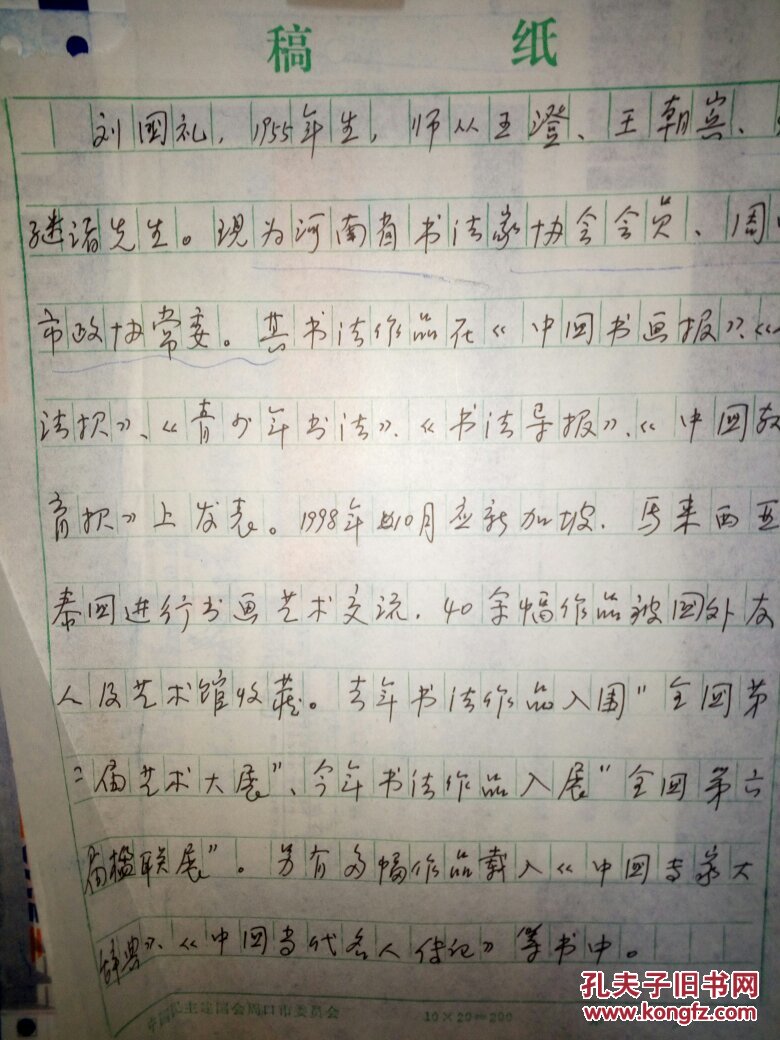 稿 纸
刘国礼，1955年生，师从王澄、王朝宾、
继诸先生。现为河南省书法家协会会员、周
市政协常委。其书法作品在《中国书画报》、《
法报》、《青少年书法》、《书法导报》、《中国教
育报》上发表。1998年10月应新加坡、马来西亚
泰国进行书画艺术交流，40余幅作品被国外友
人及艺术馆收藏。去年书法作品入围"全国第
二届艺术大展"、今年书法作品入展"全国第六
届楹联展"。另有多幅作品载入《中国专家大
辞典》、《中国当代名人传记》等书中。
中国民主建国会周口市委员会 10×20=200
孔夫子旧书网
www.kongfz.com